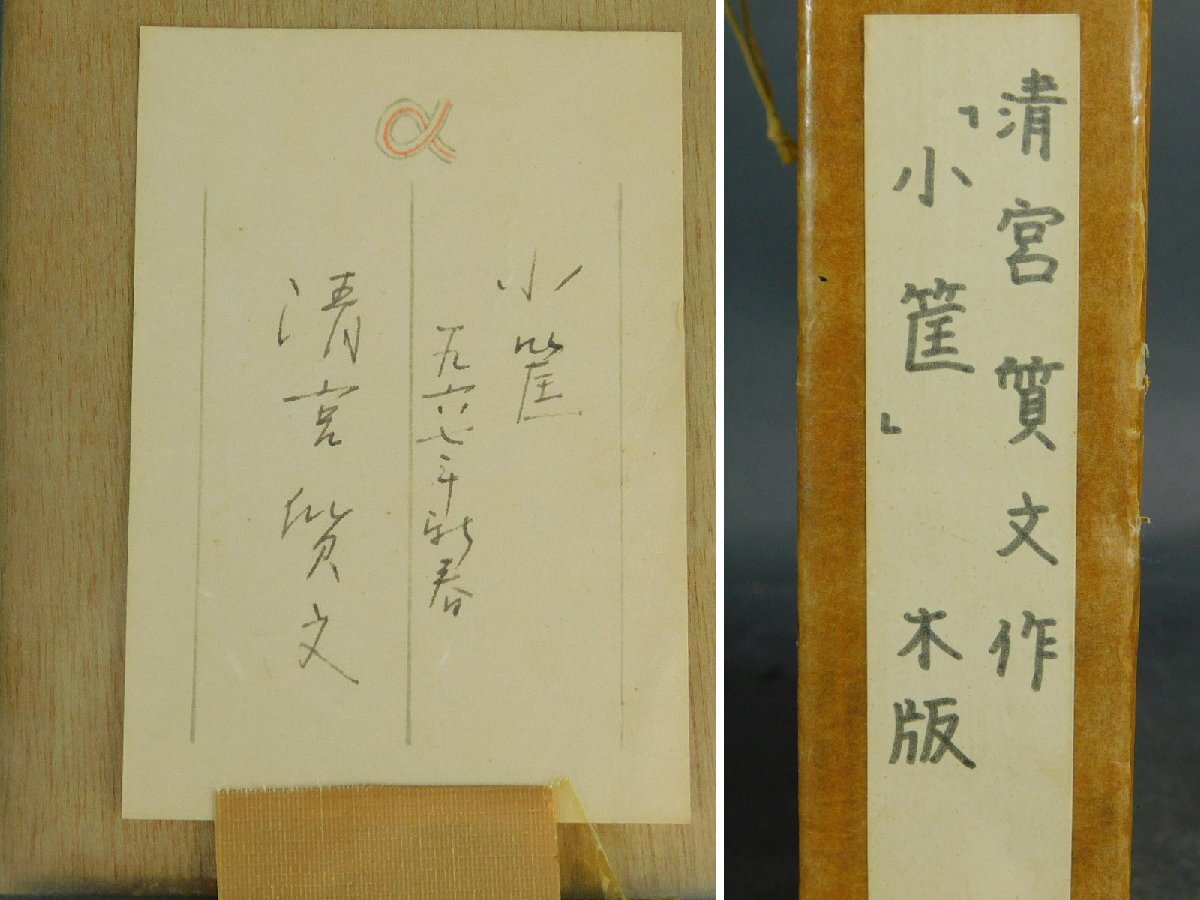 小筐
一九六七年新春
清宮質文
清宮質文作
「小筐」木版